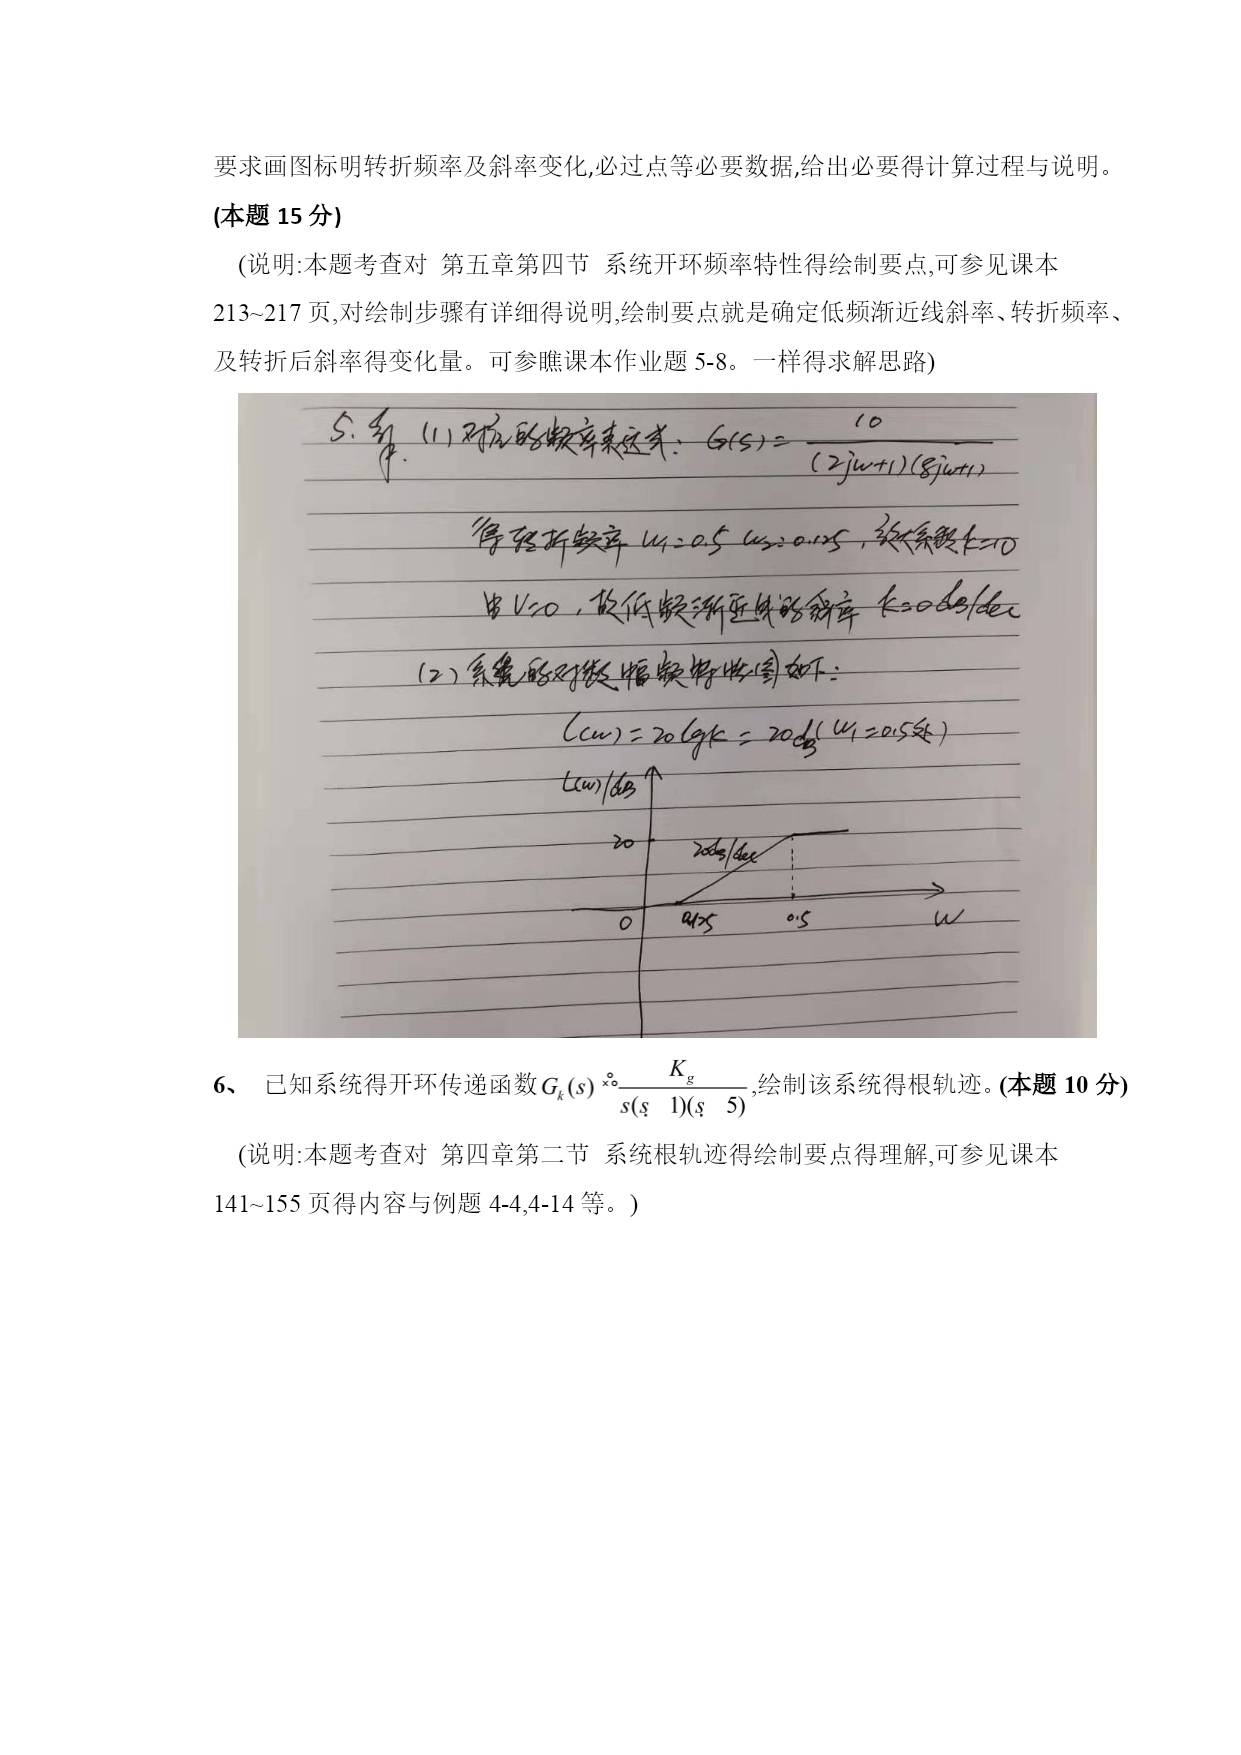 要求画图标明转折频率及斜率变化,必过点等必要数据,给出必要得计算过程与说明。
(本题 15 分)
(说明:本题考查对 第五章第四节 系统开环频率特性得绘制要点,可参见课本
213~217 页,对绘制步骤有详细得说明,绘制要点就是确定低频渐近线斜率、转折频率、
及转折后斜率得变化量。可参瞧课本作业题 5-8。一样得求解思路)
5. 解. (1) 对应的频率表达式: G(s) = 10 / (2jw+1)(8jw+1)
得转折频率 w1=0.5 w2=0.125, 放大系数k=10
由 V=0, 故低频渐近线的斜率 k=0dB/dec
(2) 系统的对数幅频特性图如下:
L(w) = 20lgk = 20dB (w1=0.5处)
L(w)/dB
20
20dB/dec
0 0.125 0.5 W
6、 已知系统得开环传递函数 Gk(s) Kg / s(s 1)(s 5) ,绘制该系统得根轨迹。(本题 10 分)
(说明:本题考查对 第四章第二节 系统根轨迹得绘制要点得理解,可参见课本
141~155 页得内容与例题 4-4,4-14 等。)